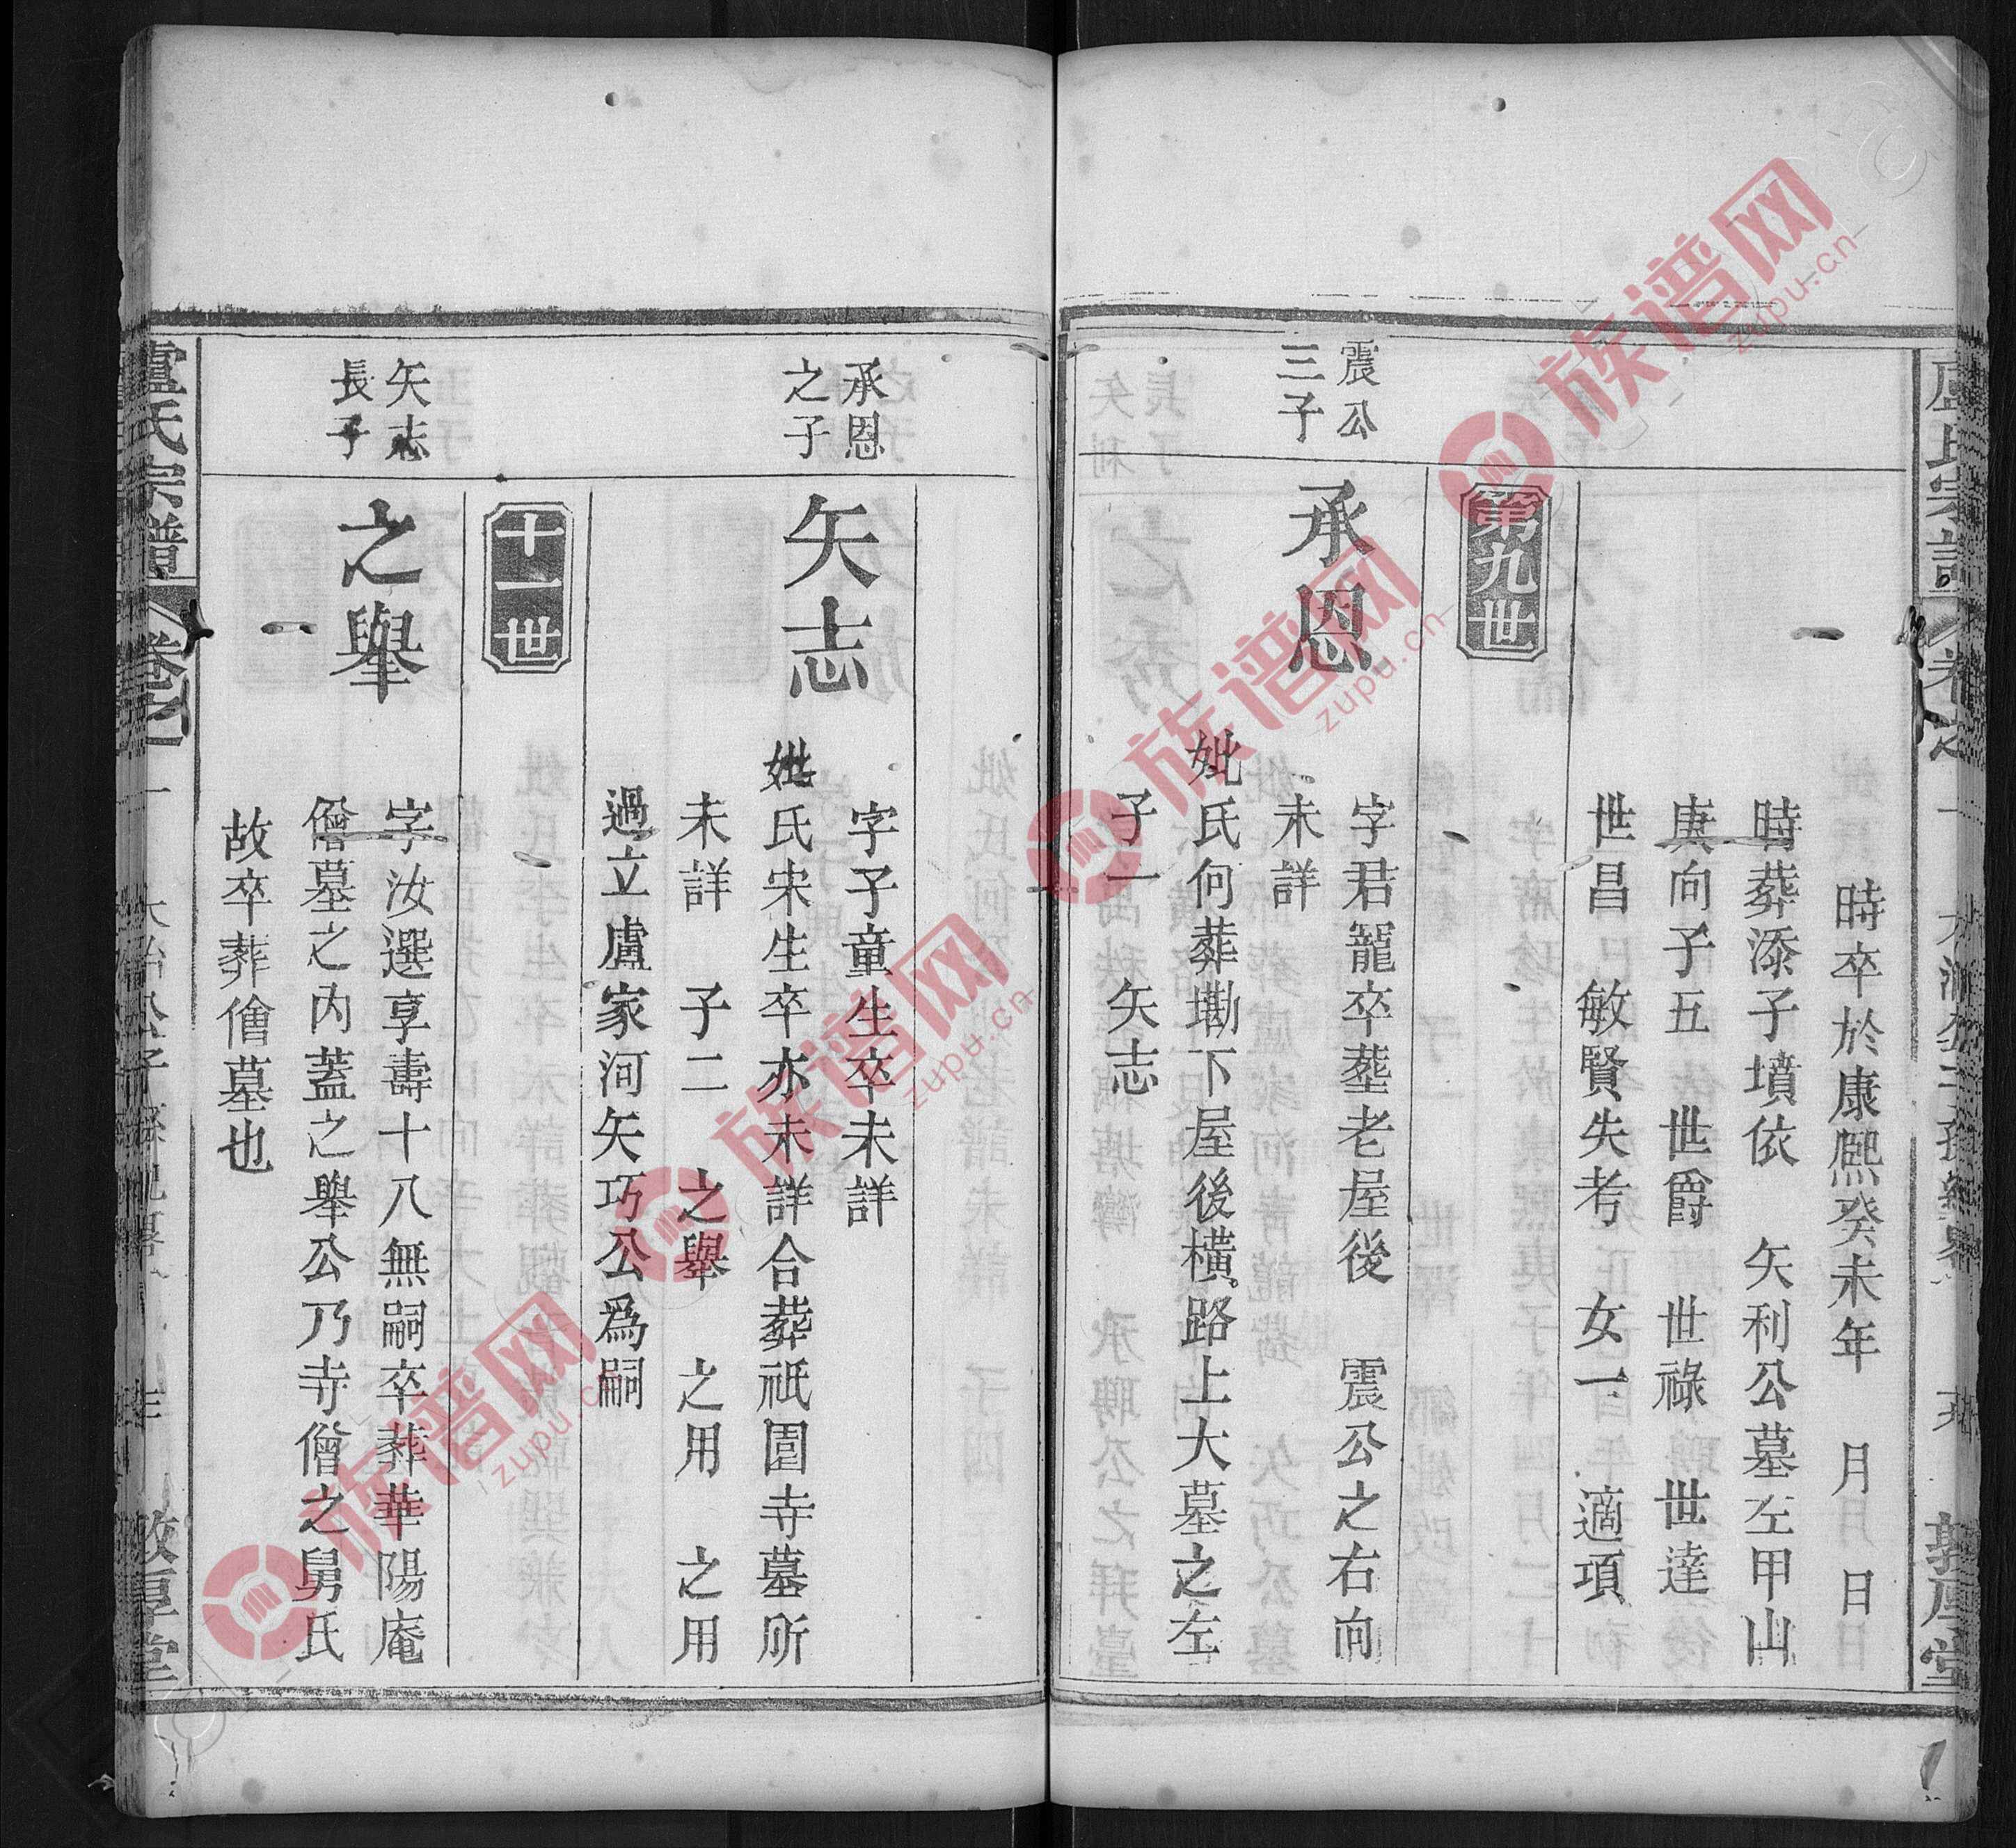 時卒於康熙癸未年 月 日
時葬添子墳依 矢利公墓左甲山
庚向子五 世爵 世祿 世達
世昌 敏賢失考 女一 適項
第九世
震公
三子
承恩
字君寵卒塟老屋後 震公之右向
未詳
妣氏何葬墈下屋後橫路上大墓之左
子一 矢志
承恩
之子
矢志
字子童生卒未詳
妣氏宋生卒亦未詳合葬祇園寺墓所
未詳 子二 之舉 之用 之用
過立盧家河矢巧公爲嗣
十一世
矢志
長子
之舉
字汝選享壽十八無嗣卒葬華陽庵
僧墓之內蓋之舉公乃寺僧之舅氏
故卒葬僧墓也
盧氏宗譜
敦厚堂
族谱网
zupu.cn
族谱网
zupu.cn
族谱网
zupu.cn
族谱网
zupu.cn